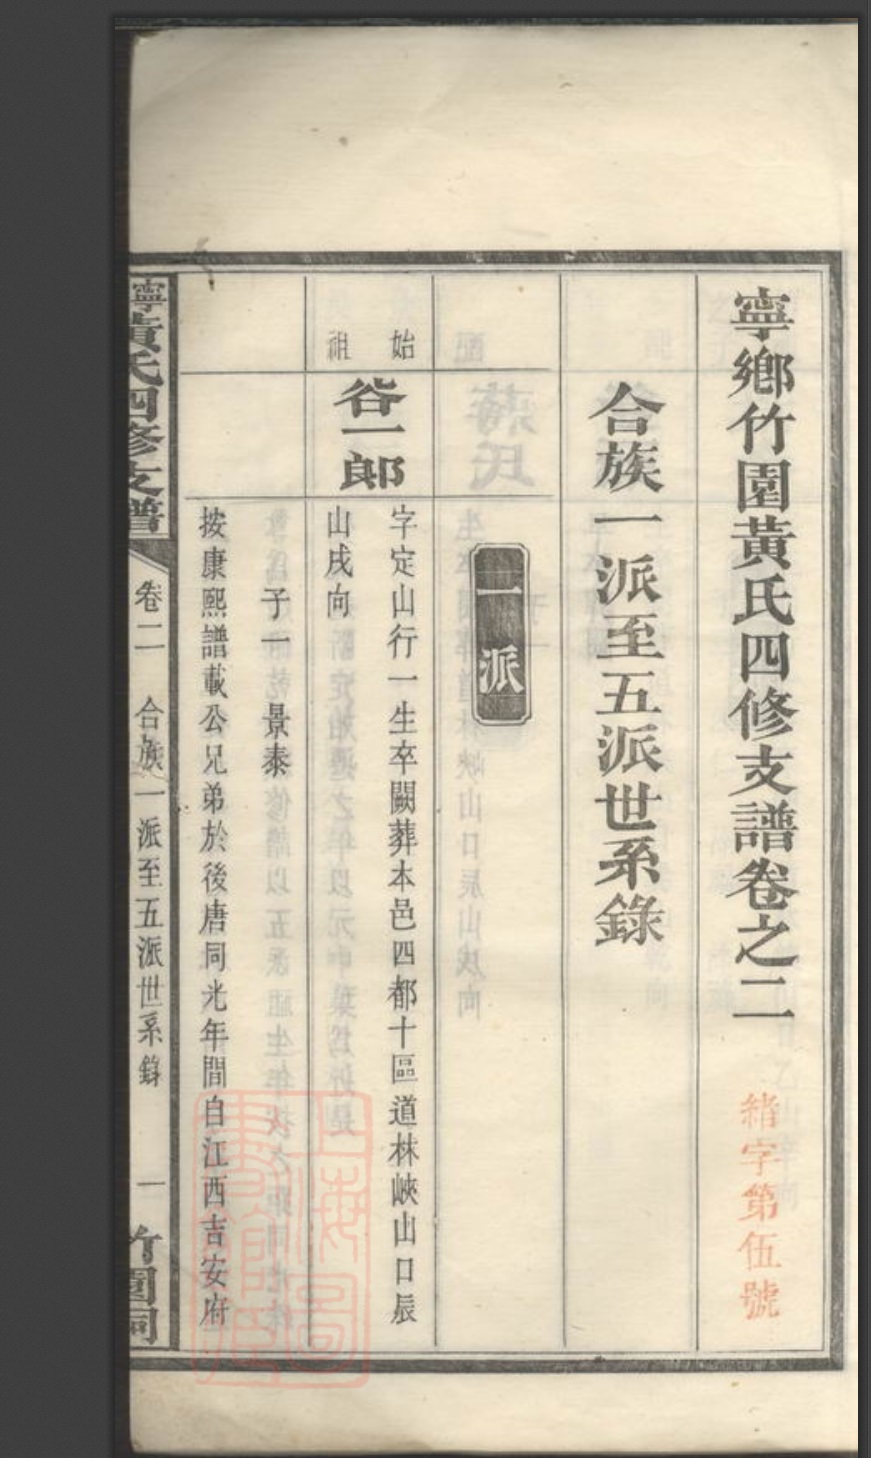 寧鄉竹園黃氏四修支譜卷之二
緒字第伍號
合族一派至五派世系錄
一派
始祖
谷一郎
字定山行一生卒闕葬本邑四都十區道林峽山口辰
山戌向
子一 景泰
按康熙譜載公兄弟於後唐同光年間自江西吉安府
寧黃氏四修支譜 卷二 合族一派至五派世系錄 一 竹園祠
上海圖書館藏